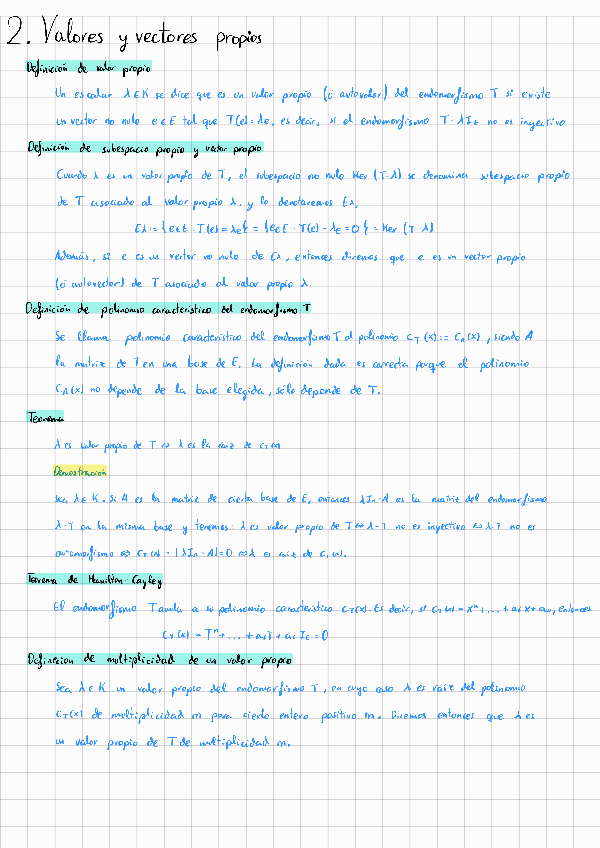 2. Valores y vectores propios
Definición de valor propio
Un escalar λ ∈ K se dice que es un valor propio (ó autovalor) del endomorfismo T si existe
un vector no nulo e ∈ E tal que T(e) = λe, es decir, si el endomorfismo T - λI_E no es inyectivo
Definición de subespacio propio y vector propio
Cuando λ es un valor propio de T, el subespacio no nulo Ker (T-λ) se denomina subespacio propio
de T asociado al valor propio λ, y lo denotaremos Eλ,
Eλ = {e ∈ E · T(e) = λe} = {e ∈ E · T(e) - λe = 0} = Ker (T-λ)
Además, si e es un vector no nulo de Eλ, entonces diremos que e es un vector propio
(ó autovector) de T asociado al valor propio λ.
Definición de polinomio característico del endomorfismo T
Se llama polinomio característico del endomorfismo T al polinomio C_T (x) := C_A (x), siendo A
la matriz de T en una base de E. La definición dada es correcta porque el polinomio
C_A(x) no depende de la base elegida, sólo depende de T.
Teorema
λ es valor propio de T ⇔ λ es la raíz de C_T(x)
Demostración
Sea λ ∈ K. Si A es la matriz de cierta base de E, entonces λI_n - A es la matriz del endomorfismo
λ-T en la misma base y tenemos: λ es valor propio de T ⇔ λ-T no es inyectivo ⇔ λ-T no es
automorfismo ⇔ C_T(λ) = |λI_n - A| = 0 ⇔ λ es raíz de C_T(x).
Teorema de Hamilton-Cayley
El endomorfismo T anula a su polinomio característico C_T(x). Es decir, si C_T(x) = x^n + ... + a_1 x + a_0, entonces
C_T(x) = T^n + ... + a_1 T + a_0 I_E = 0
Definición de multiplicidad de un valor propio
Sea λ ∈ K un valor propio del endomorfismo T, en cuyo caso λ es raíz del polinomio
C_T(x) de multiplicidad m para cierto entero positivo m. Diremos entonces que λ es
un valor propio de T de multiplicidad m.